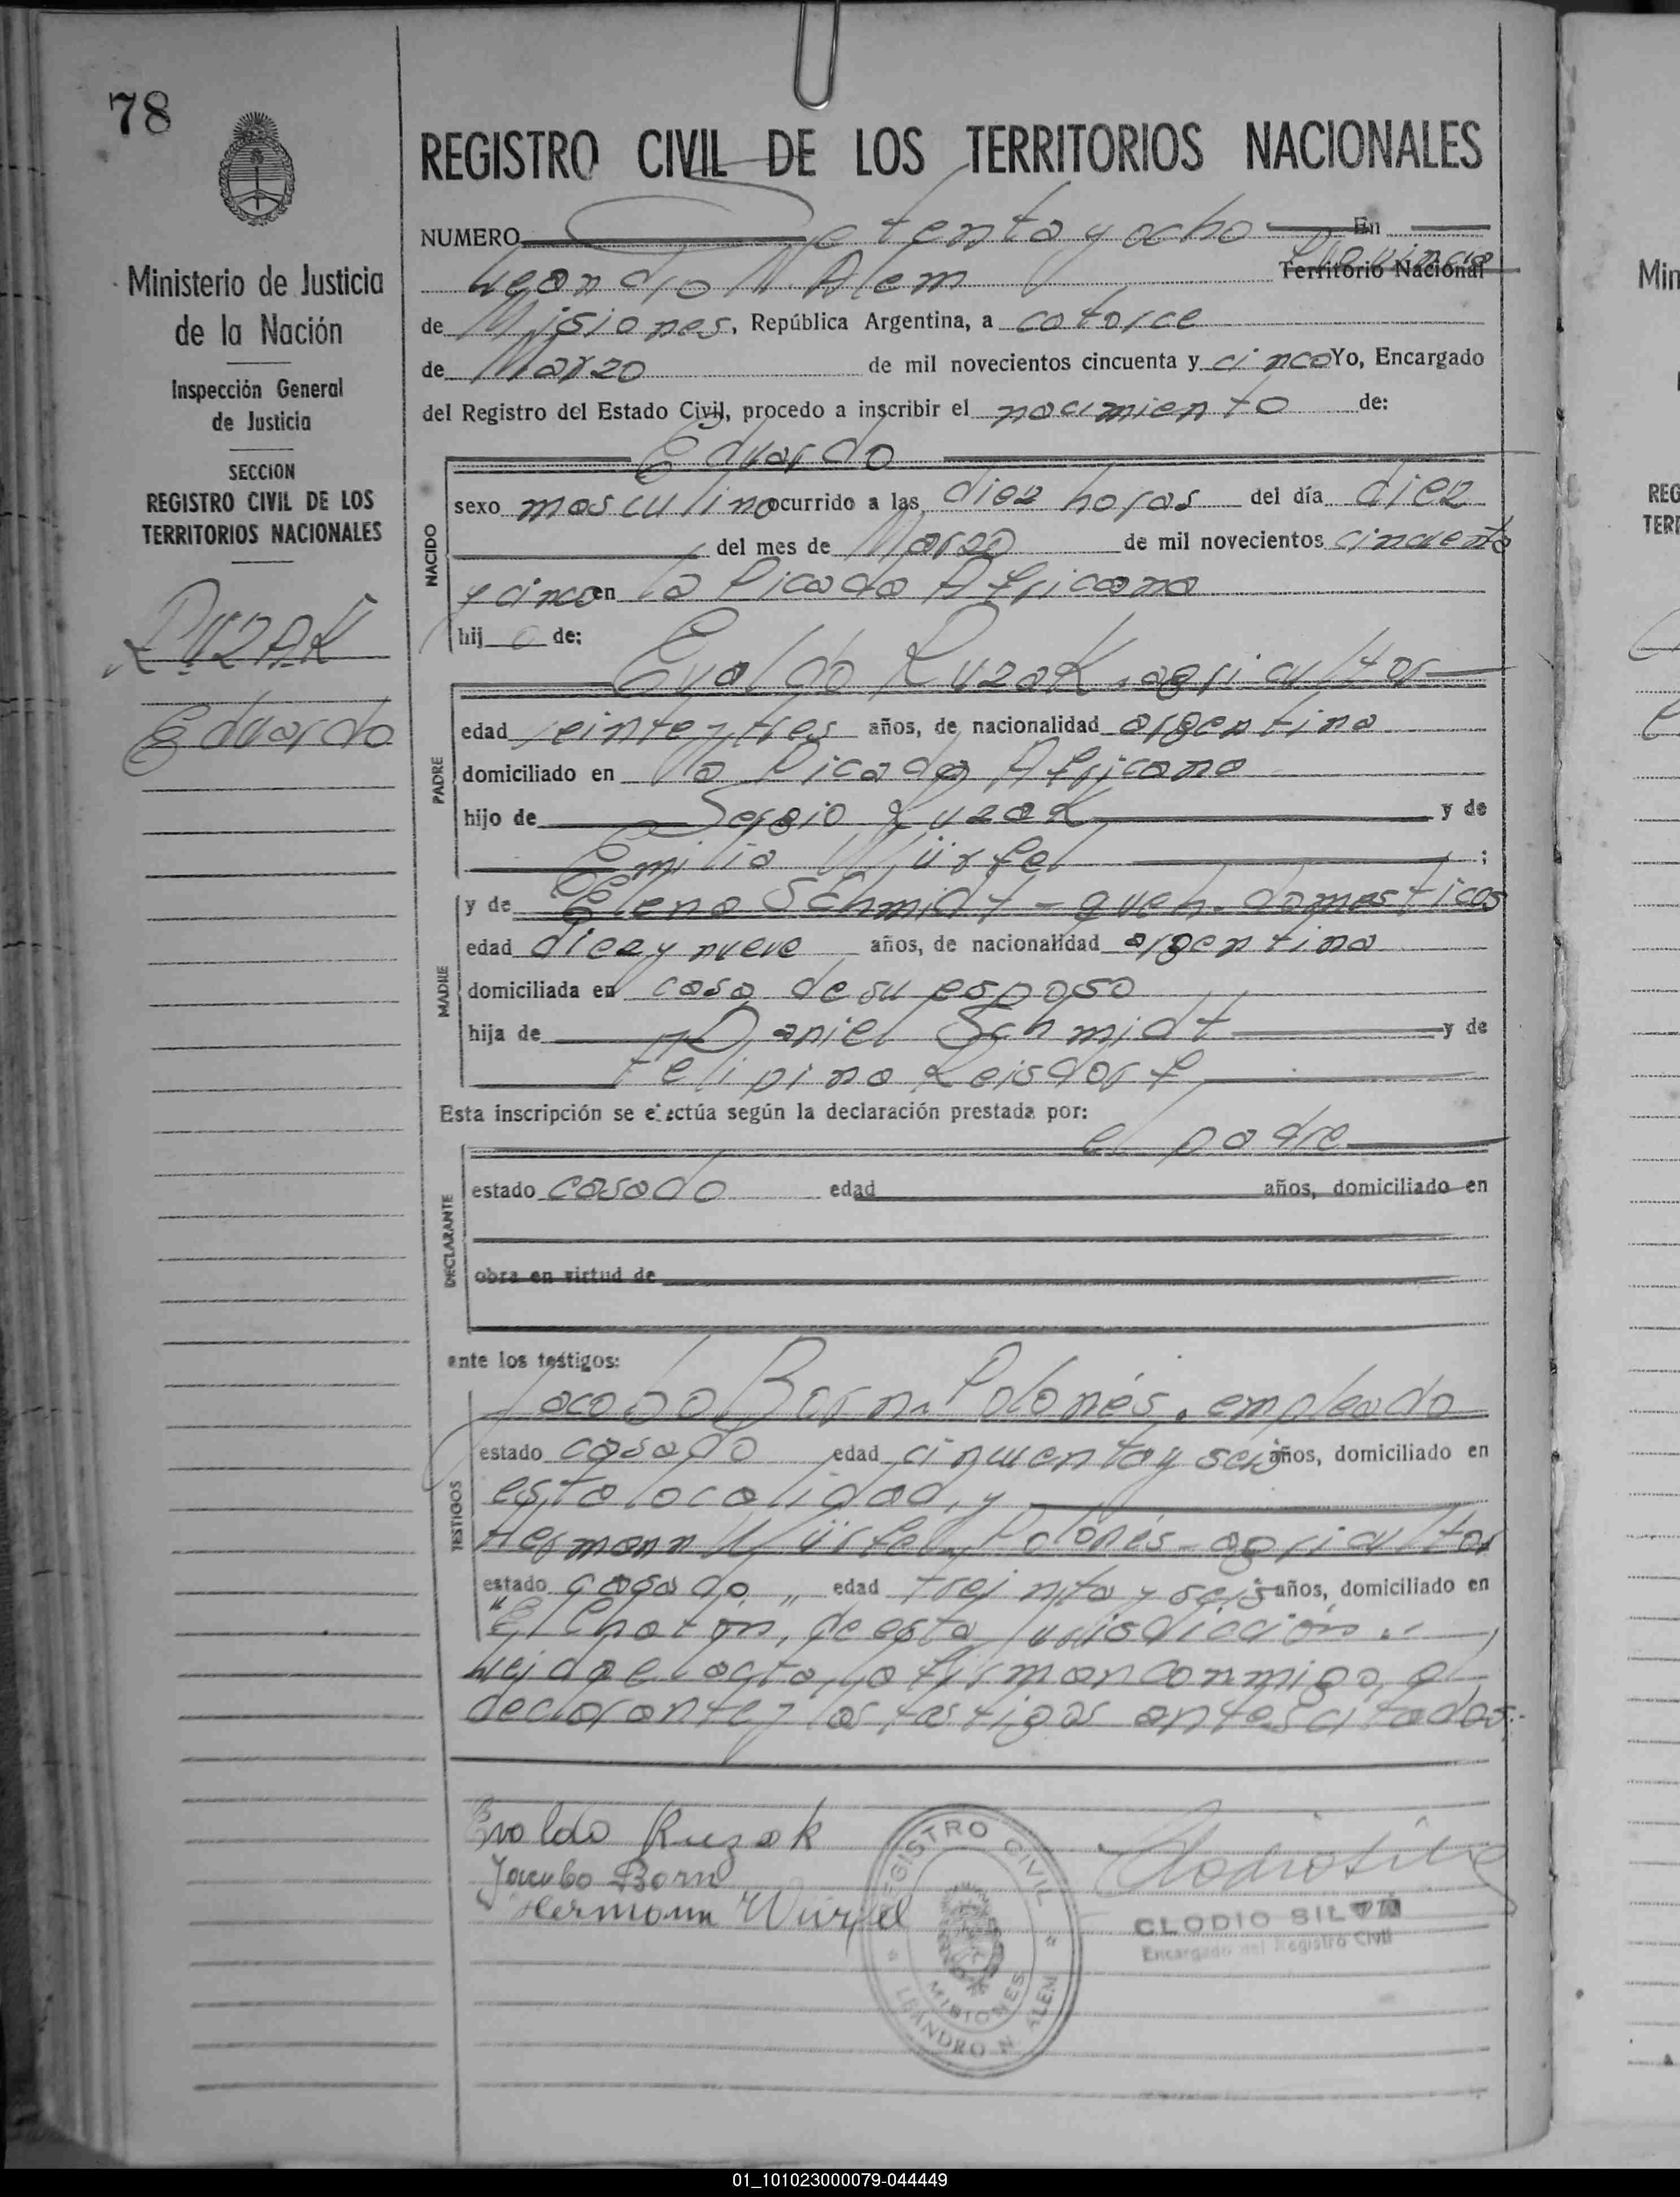 78
REGISTRO CIVIL DE LOS TERRITORIOS NACIONALES
Ministerio de Justicia
de la Nación
Inspección General
de Justicia
SECCION
REGISTRO CIVIL DE LOS
TERRITORIOS NACIONALES
RUZAK
Eduardo
NUMERO Setenta y ocho En
Leandro N. Alem Provincia Territorio Nacional
de Misiones, República Argentina, a catorce
de Marzo de mil novecientos cincuenta y cinco Yo, Encargado
del Registro del Estado Civil, procedo a inscribir el nacimiento de:
Eduardo
NACIDO
sexo masculino ocurrido a las diez horas del día diez
del mes de Marzo de mil novecientos cincuenta
y cinco en la Picada Africana
hijo de:
Evaldo Ruzak, agricultor
PADRE
edad veinte y tres años, de nacionalidad argentina
domiciliado en la Picada Africana
hijo de Sergio Ruzak y de
Emilia Würfel ;
MADRE
y de Elena Schmidt - queh. domesticos
edad diez y nueve años, de nacionalidad argentina
domiciliada en casa de su esposo
hija de Daniel Schmidt y de
Felipina Reisdorf
Esta inscripción se efectúa según la declaración prestada por:
el padre
DECLARANTE
estado casado edad años, domiciliado en
obra en virtud de
ante los testigos:
TESTIGOS
Jacobo Born. Polonés. empleado
estado casado edad cincuenta y seis años, domiciliado en
esta localidad, y
Hermann Würfel. Polonés - agricultor
estado casado " edad treinta y seis años, domiciliado en
"El Chatón, de esta jurisdicción.
Leida el acta, la firman conmigo, el
declarante y los testigos antes citados.-
Evaldo Ruzak
Jacubo Born
Hermann Würfel
REGISTRO CIVIL
MISIONES
LEANDRO N. ALEM
Clodio Silva
CLODIO SILVA
Encargado del Registro Civil
Min
REG
TERR
01_101023000079-044449